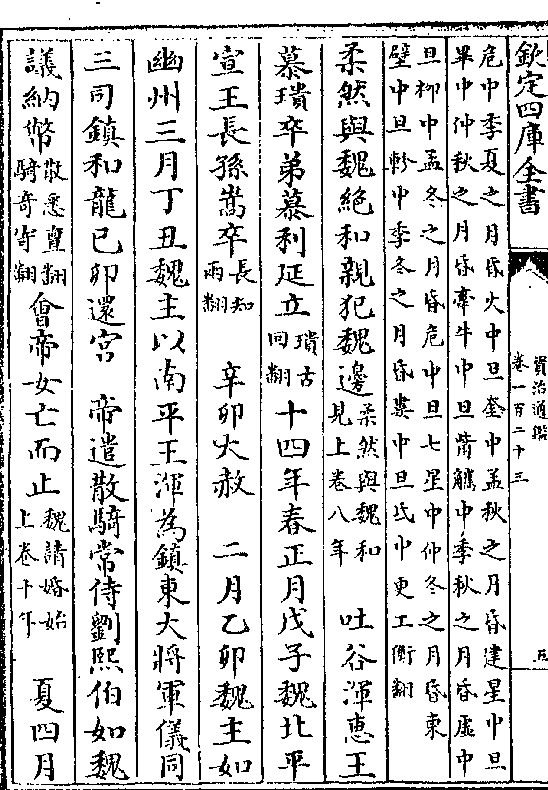 欽定四庫全書
資治通鑑
卷一百二十三
危中季夏之月昏火中旦奎中孟秋之月昏建星中旦
畢中仲秋之月昏牽牛中旦觜觿中季秋之月昏虛中
旦柳中孟冬之月昏危中旦七星中仲冬之月昏東
壁中旦軫中季冬之月昏婁中旦氐中更工衡翻
柔然與魏絶和親犯魏邊柔然與魏和見上卷八年 吐谷渾惠王
慕璝卒弟慕利延立璝古回翻十四年春正月戊子魏北平
宣王長孫嵩卒長知兩翻 辛卯大赦 二月乙卯魏主如
幽州三月丁丑魏主以南平王渾為鎮東大將軍儀同
三司鎮和龍已卯還宫 帝遣散騎常侍劉熙伯如魏
議納幣散悉亶翻騎奇寄翻會帝女亡而止魏請婚始上卷十年 夏四月